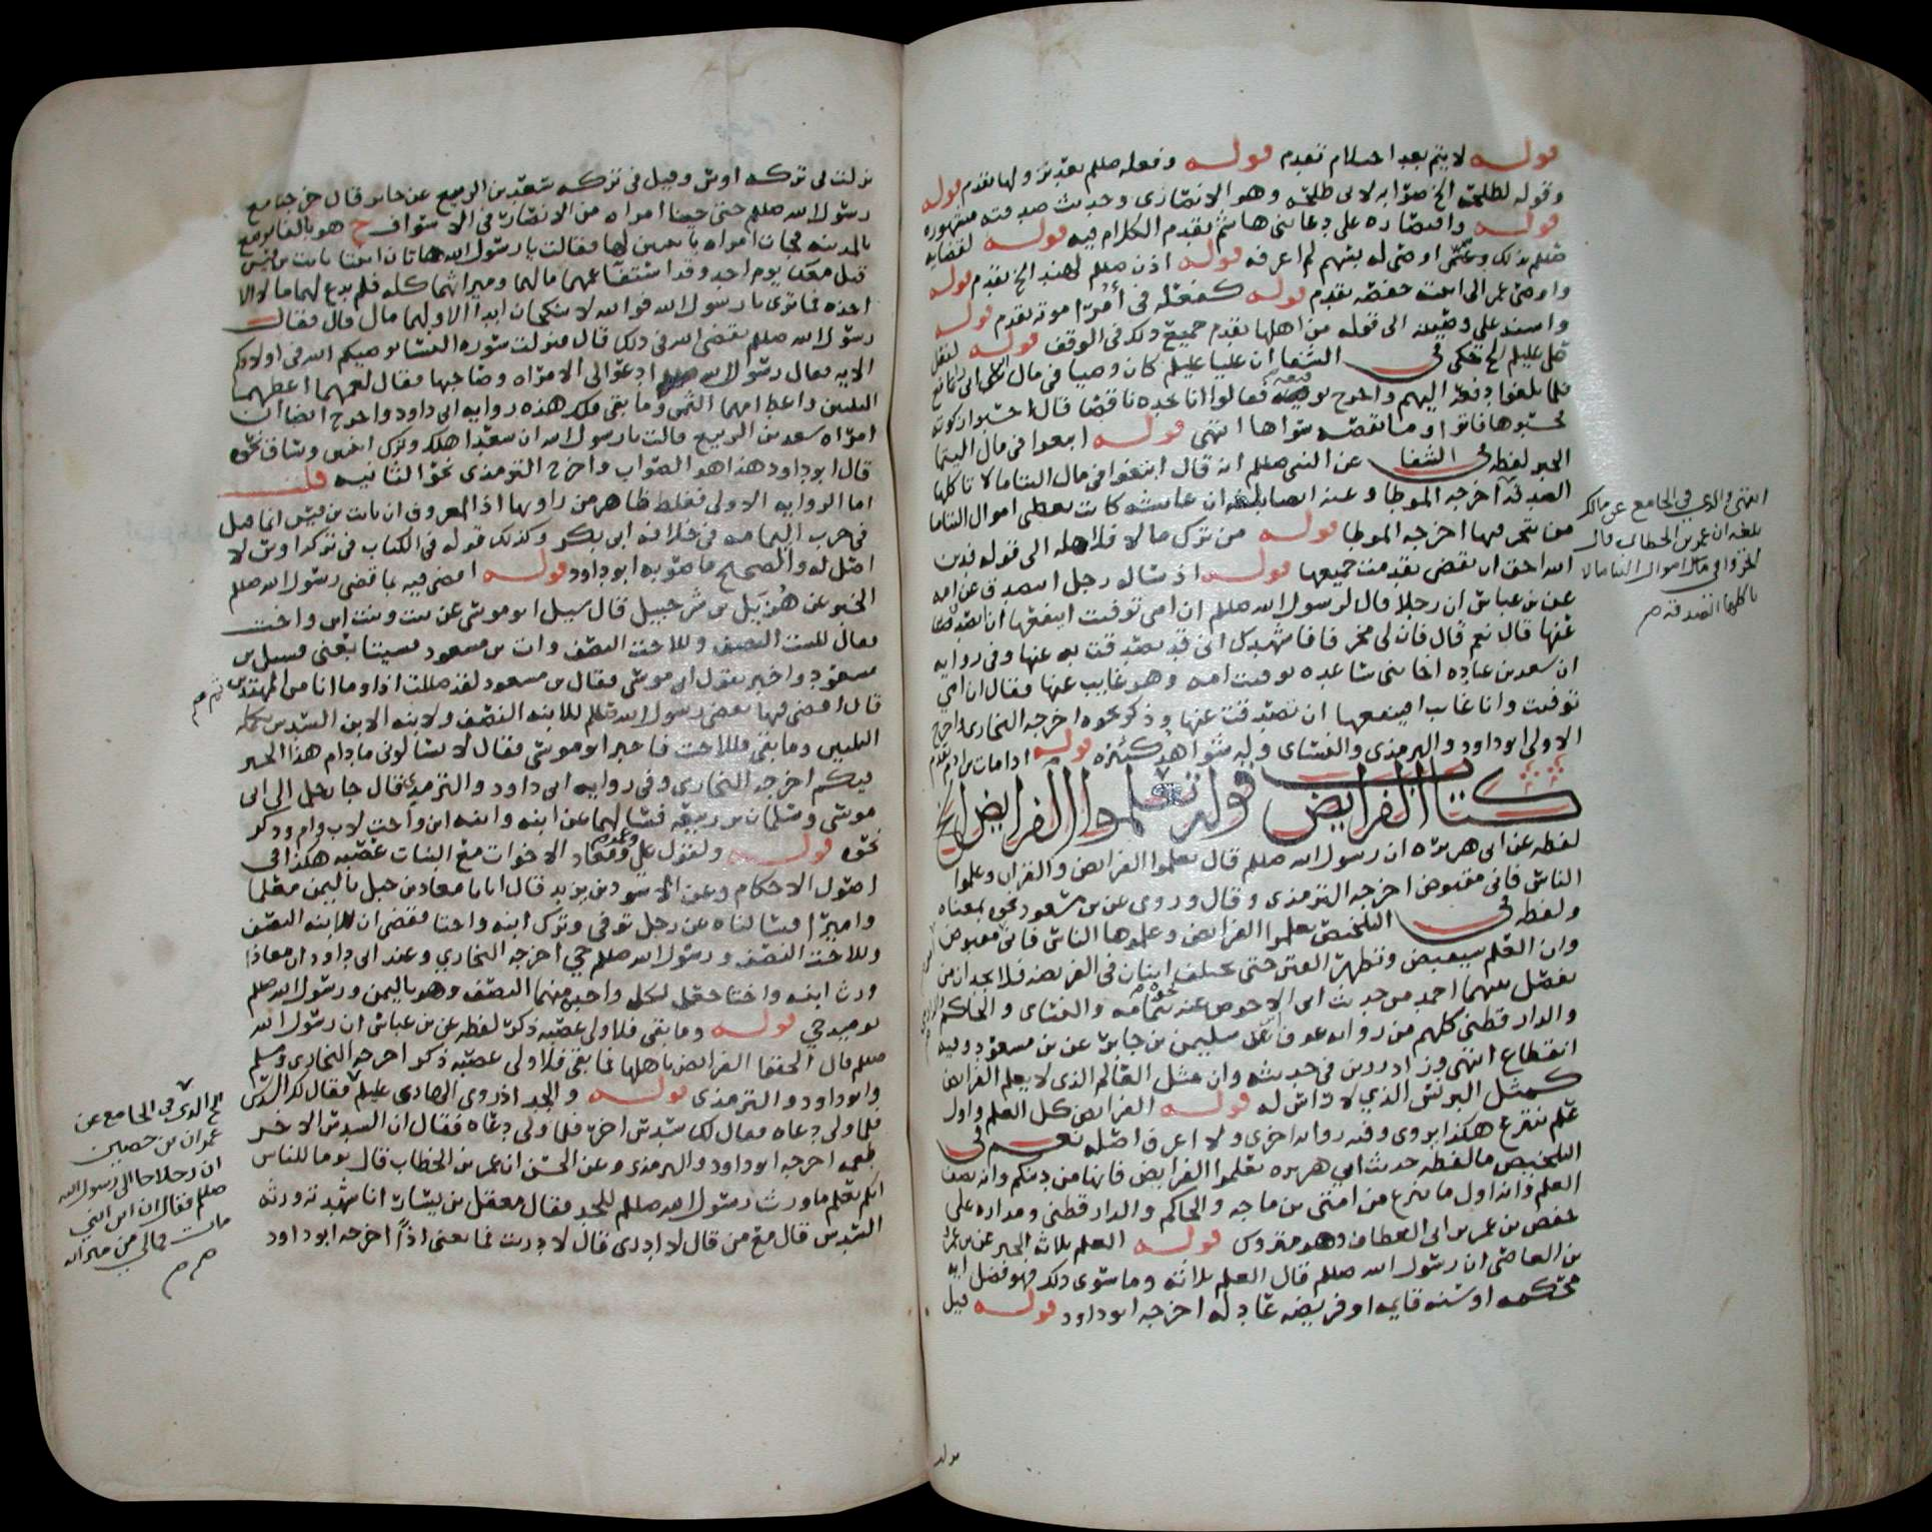 قوله لا يتم بعد احتلام تقدم قوله وفعله صللم تقدم قوله
وقوله لطلحة الخ صوابه لابي طلحة وهو الانصاري وحديث صدقته مشهوره
قوله واقتصاره على دعا بني هاشم تقدم الكلام فيه قوله
صللم بذلك وعمر اوصى له بسهم لم اعرفه قوله اذن صللم لهند الخ تقدم قوله
واوصى عمر الى ابنته حفصه تقدم قوله كفعله في أُمرَا موته تقدم قوله
واسند علي وصيته الى قوله من اهلها تقدم جميع ذلك في الوقف قوله
علي عليلم الخ حكى في الشفا ان عليا عليلم كان وصيا في مال
فلما بلغوا دفعه اليهم فقالوا انا نجده ناقصا قال احسبوا زكوته
فحسبوها فاتوا وما نقصه سواها انتهى قوله ابتغوا في مال اليتما
الخبر لفظه في الشفا عن النبي صللم انه قال ابتغوا في مال اليتاما لا تاكلها
الصدقه اخرجه الموطا وعنه ايضا بلغه ان عايشه كانت تعطي اموال اليتاما
من يتجر فيها اخرجه الموطا قوله من ترك مالا فلاهله الى قوله فدين
الله احق ان يقضى تقدمت جميعها قوله اذ ساله رجل اتصدق عن امه
عن بن عباس ان رجلا قال لرسول الله صللم ان امي توفيت اينفعها ان اتصدق
عنها قال نعم قال فان لي مخرفا فاشهدك اني قد تصدقت به عنها وفي روايه
ان سعد بن عباده اخا بني ساعده توفيت امه وهو غايب عنها فقال ان امي
توفيت وانا غايب اينفعها ان تصدقت عنها وذكر نحوه اخرجه البخاري واخرج
الاولى ابو داود والترمذي والنساى وله شواهد كثيره قوله
كتاب الفرايض قوله تعلموا الفرايض الخ
لفظه عن ابي هريره ان رسول الله صللم قال تعلموا الفرايض والقران وعلموا
الناس فاني مقبوض اخرجه الترمذي وقال وروي عن بن مسعود نحوه بمعناه
ولفظه في التلخيص تعلموا الفرايض وعلموها الناس فاني مقبوض
وان العلم سيقبض وتظهر الفتن حتى يختلف اثنان في الفريضه فلا يجدان من
يفصل بينهما احمد من حديث ابي الاحوص عنه والنساى والحاكم
والدارقطني كلهم من روايه عوف عن سليمن بن جابر عن بن مسعود وفيه
انقطاع انتهى وزاد رزين في حديثه وان مثل العالم الذي لا يعلم الفرايض
كمثل البرنس الذي لا راس له قوله الفرايض كل العلم واول
علم ينزع هكذا روي وفيه روايه اخرى ولا اعرف اصله نعم في
التلخيص ما لفظه حديث ابي هريره تعلموا الفرايض فانها من دينكم وانه نصف
العلم وانه اول ما ينزع من امتي بن ماجه والحاكم والدارقطني ومداره على
حفص بن عمر بن ابي العطاف وهو متروك قوله العلم ثلاثه الخبر عن بن عمرو
بن العاصي ان رسول الله صللم قال العلم ثلاثه وما سوى ذلك فهو فضل ايه
محكمه او سنه قايمه او فريضه عادله اخرجه ابو داود قوله قيل
انتهى والذي في الجامع عن مالك
بلغه ان عمر بن الخطاب قال
اتجروا في مال اموال اليتاما لا
تاكلها الصدقه م
نزلت في تركه اوس وقيل في تركه سعد بن الربيع عن جابر قال خرجنا مع
رسول الله صللم حتى جينا امراه من الانصار في الاسواف ح هو بالفا موضع
بالمدينه فجات امراه بابنتين لها فقالت يا رسول الله هاتان ابنتا ثابت بن قيس
قتل معك يوم احد وقد استفا عمهما مالهما وميراثهما كله فلم يدع لهما مالا الا
اخذه فما ترى يا رسول الله فوالله لا ينكحان ابدا الا ولهما مال قال فقال
رسول الله صللم يقضي الله في ذلك قال فنزلت سوره النسا يوصيكم الله في اولادكم
الايه فقال رسول الله صللم ادعوا لي الامراه وصاحبها فقال لعمهما اعطهما
الثلثين واعط امهما الثمن وما بقي فلك هذه روايه ابي داود واخرج ايضا ان
امراه سعد بن الربيع قالت يا رسول الله ان سعدا هلك وترك ابنتين وساق نحوه
قال ابو داود هذا هو الصواب واخرج الترمذي نحو الثانيه قلت
اما الروايه الاولى فغلط ظاهر من راويها اذ المعروف ان ثابت بن قيس انما قتل
في حرب اليمامه في خلافه ابي بكر وكذلك قوله في الكتاب في تركه اوس لا
اصل له والصحيح ما صوبه ابو داود قوله اقضي فيه بما قضى رسول الله صللم
الخبر عن هُزَيل بن شرحبيل قال سيل ابو موسى عن بنت وبنت ابن واخت
فقال للبنت النصف وللاخت النصف وات بن مسعود فسيتابعني فسيل بن
مسعود واخبر بقول ابي موسى فقال بن مسعود لقد ضللت اذا وما انا من المهتدين
قال اقضي فيها بقضى رسول الله صللم للابنه النصف ولابنه الابن السدس تكمله
الثلثين وما بقي فللاخت فاخبر ابو موسى فقال لا تسالوني ما دام هذا الحبر
فيكم اخرجه البخاري وفي روايه ابي داود والترمذي فقال جا رجل الى ابي
موسى وسلمان بن ربيعه فسالهما عن ابنه وابنه ابن واخت لاب وام وذكر
نحوه قوله ولقول علي ومعاذ الاخوات مع البنات عصبه هكذا في
اصول الاحكام وعن الاسود بن يزيد قال اتانا معاذ بن جبل باليمن معلما
واميرا فسالناه عن رجل توفي وترك ابنه واختا فقضى ان للابنه النصف
وللاخت النصف ورسول الله صللم حي اخرجه البخاري وعند ابي داود ان معاذا
ورث ابنه واختا جعل لكل واحده منهما النصف وهو باليمن ورسول الله صللم
يوميذ حي قوله وما بقي فلاولى عصبه ذكر لفظه عن بن عباس ان رسول الله
صللم قال الحقوا الفرايض باهلها فما بقي فلاولى عصبه ذكر اخرجه البخاري ومسلم
وابو داود والترمذي قوله والجد اذ روى الهادي عليلم فقال لك السدس
فلما ولى دعاه فقال لك سدس اخر فلما ولى دعاه فقال ان السدس الاخر
طعمه اخرجه ابو داود والترمذي وعن الحسن ان عمر بن الخطاب قال يوما للناس
ايكم يعلم ما ورث رسول الله صللم للجد فقال معقل بن يسار انا شهدته ورثه
السدس قال مع من قال لا ادري قال لا دريت فما يغني اذاً اخرجه ابو داود
الخ الذي في الجامع عن
عمران بن حصين
ان رجلا جا الى رسول الله
صللم فقال ان ابن ابني
مات فمالي من ميراثه
م م